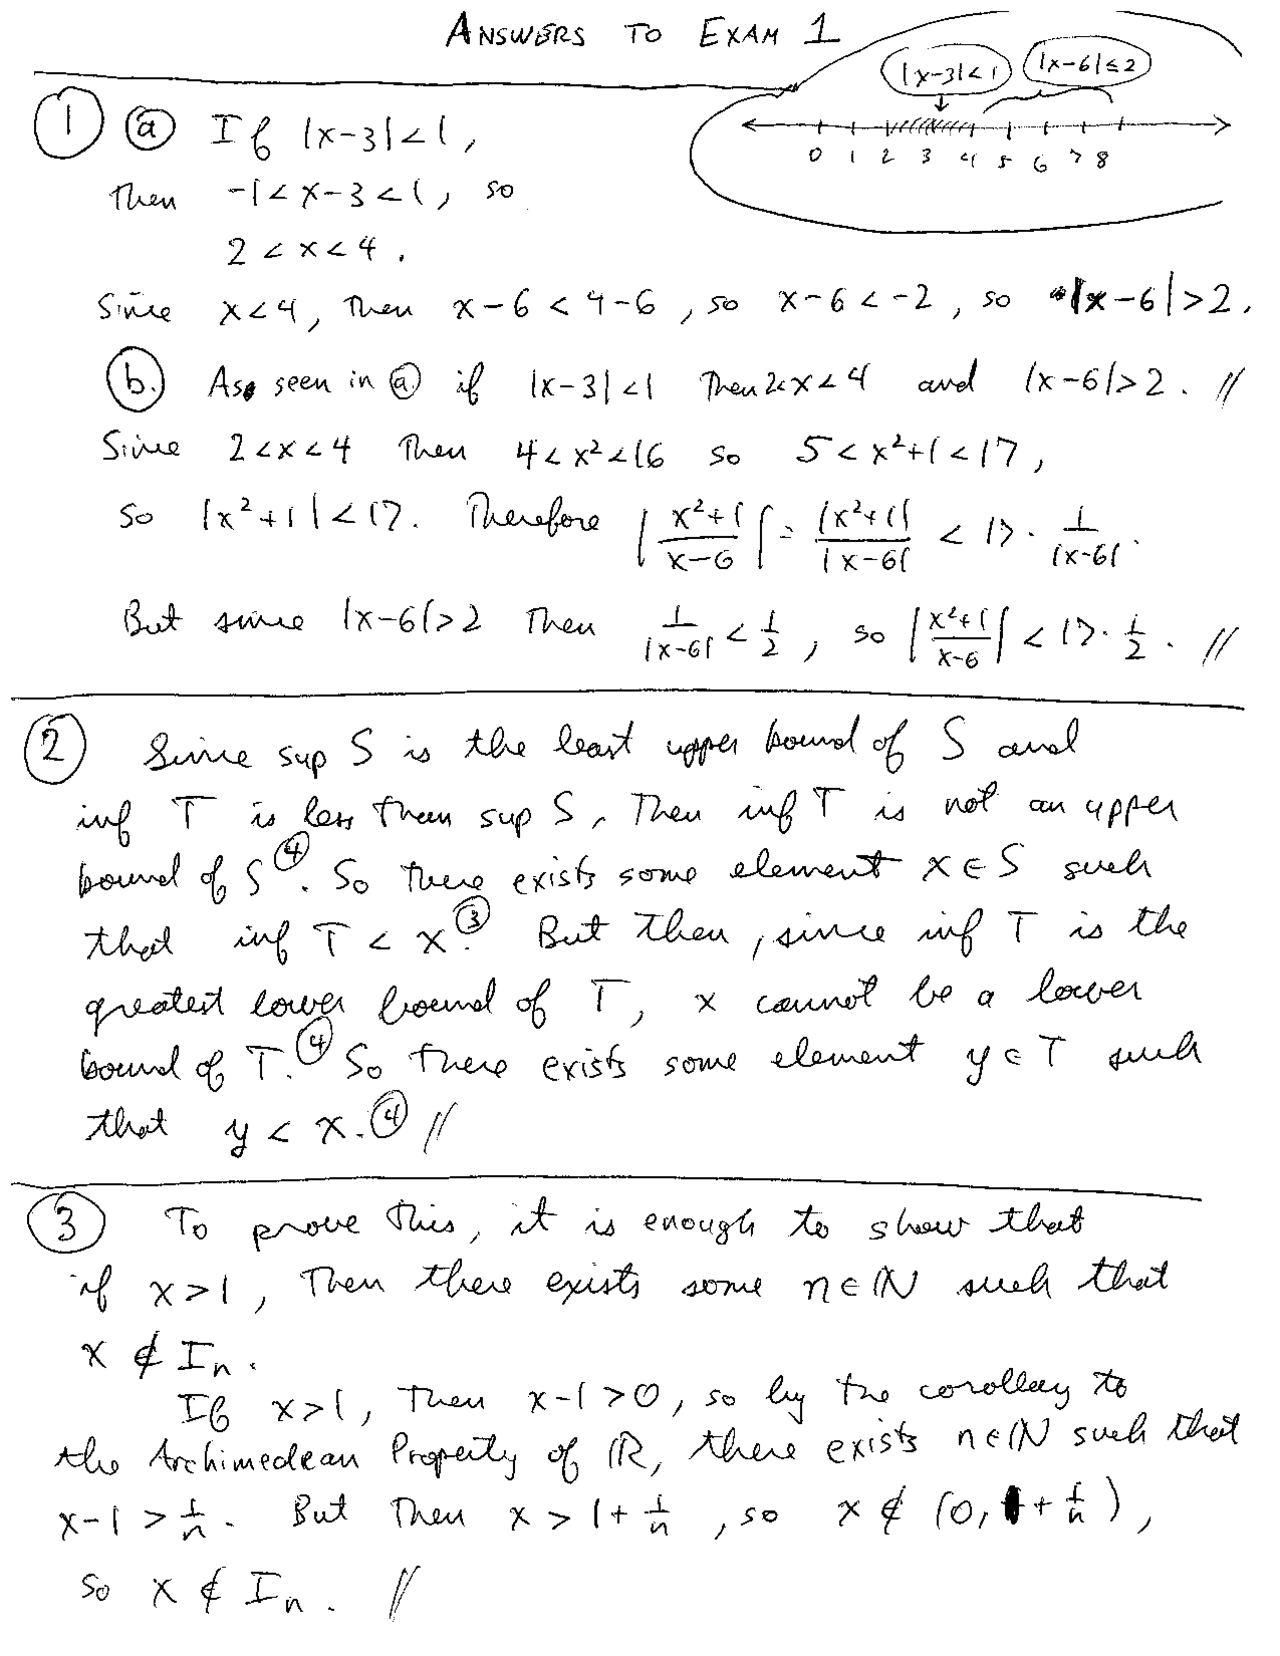 ANSWERS TO EXAM 1
|x-3|<1 |x-6|≤2
0 1 2 3 4 5 6 7 8
① ⓐ If |x-3|<1,
Then -1<x-3<1, so
2<x<4.
Since x<4, Then x-6<4-6, so x-6<-2, so |x-6|>2.
ⓑ. As seen in ⓐ if |x-3|<1 Then 2<x<4 and |x-6|>2. //
Since 2<x<4 Then 4<x²<16 so 5<x²+1<17,
so |x²+1|<17. Therefore |(x²+1)/(x-6)| = |x²+1|/|x-6| < 17·1/|x-6|.
But since |x-6|>2 Then 1/|x-6| < 1/2, so |(x²+1)/(x-6)| < 17·1/2. //
② Since sup S is the least upper bound of S and
inf T is less than sup S, Then inf T is not an upper
bound of S④. So there exists some element x∈S such
that inf T < x.③ But then, since inf T is the
greatest lower bound of T, x cannot be a lower
bound of T.④ So there exists some element y∈T such
that y < x.④ //
③ To prove this, it is enough to show that
if x>1, Then there exists some n∈ℕ such that
x∉Iₙ.
If x>1, Then x-1>0, so by the corollary to
the Archimedean Property of ℝ, there exists n∈ℕ such that
x-1>1/n. But Then x>1+1/n, so x∉(0,1+1/n),
so x∉Iₙ. //